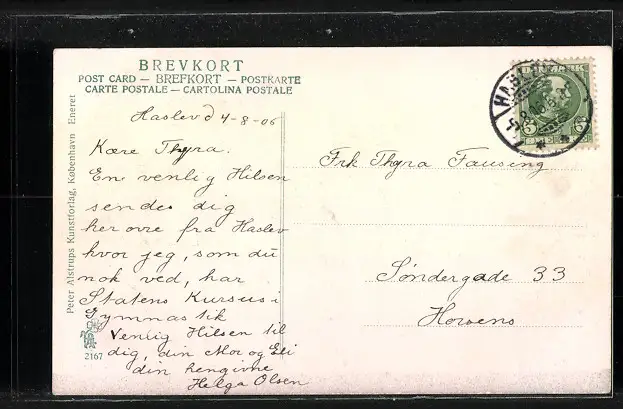 BREVKORT
POST CARD — BREFKORT — POSTKARTE
CARTE POSTALE — CARTOLINA POSTALE
Peter Alstrups Kunstforlag, København Eneret
Haslev d 4-8-06
Kære Thyra.
En venlig Hilsen
sendes dig
her ovre fra Haslev
hvor jeg, som du
nok ved, har
Statens Kursus i
Gymnastik
Venlig Hilsen til
dig, din Mor og Eli
din hengivne
Helga Olsen
2167
HASLEV
5 5
Frk Thyra Fausing
Søndergade 33
Horsens